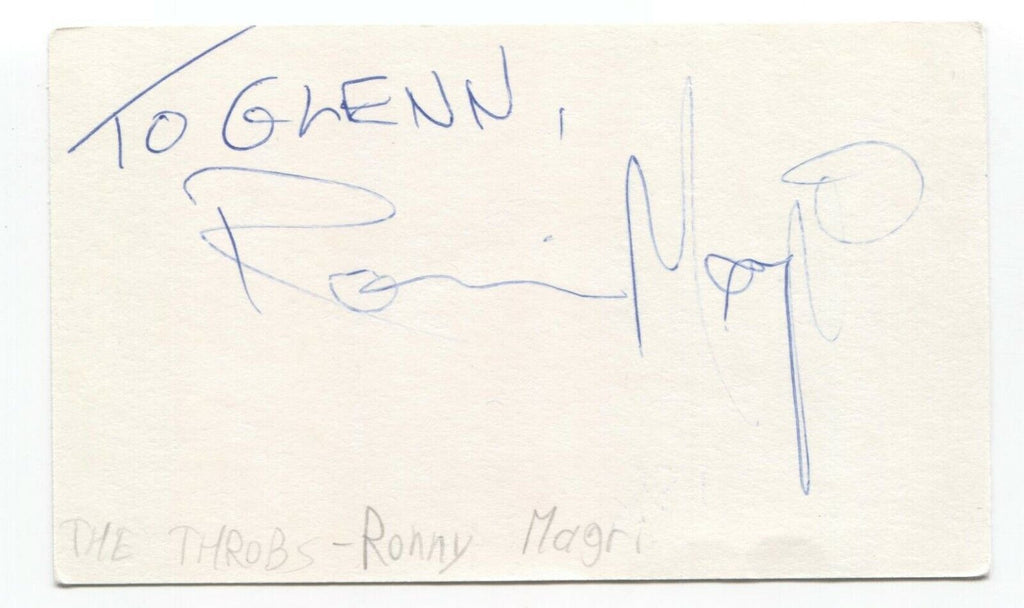 TO GLENN,
Ronni Magri
THE THROBS - Ronny Magri